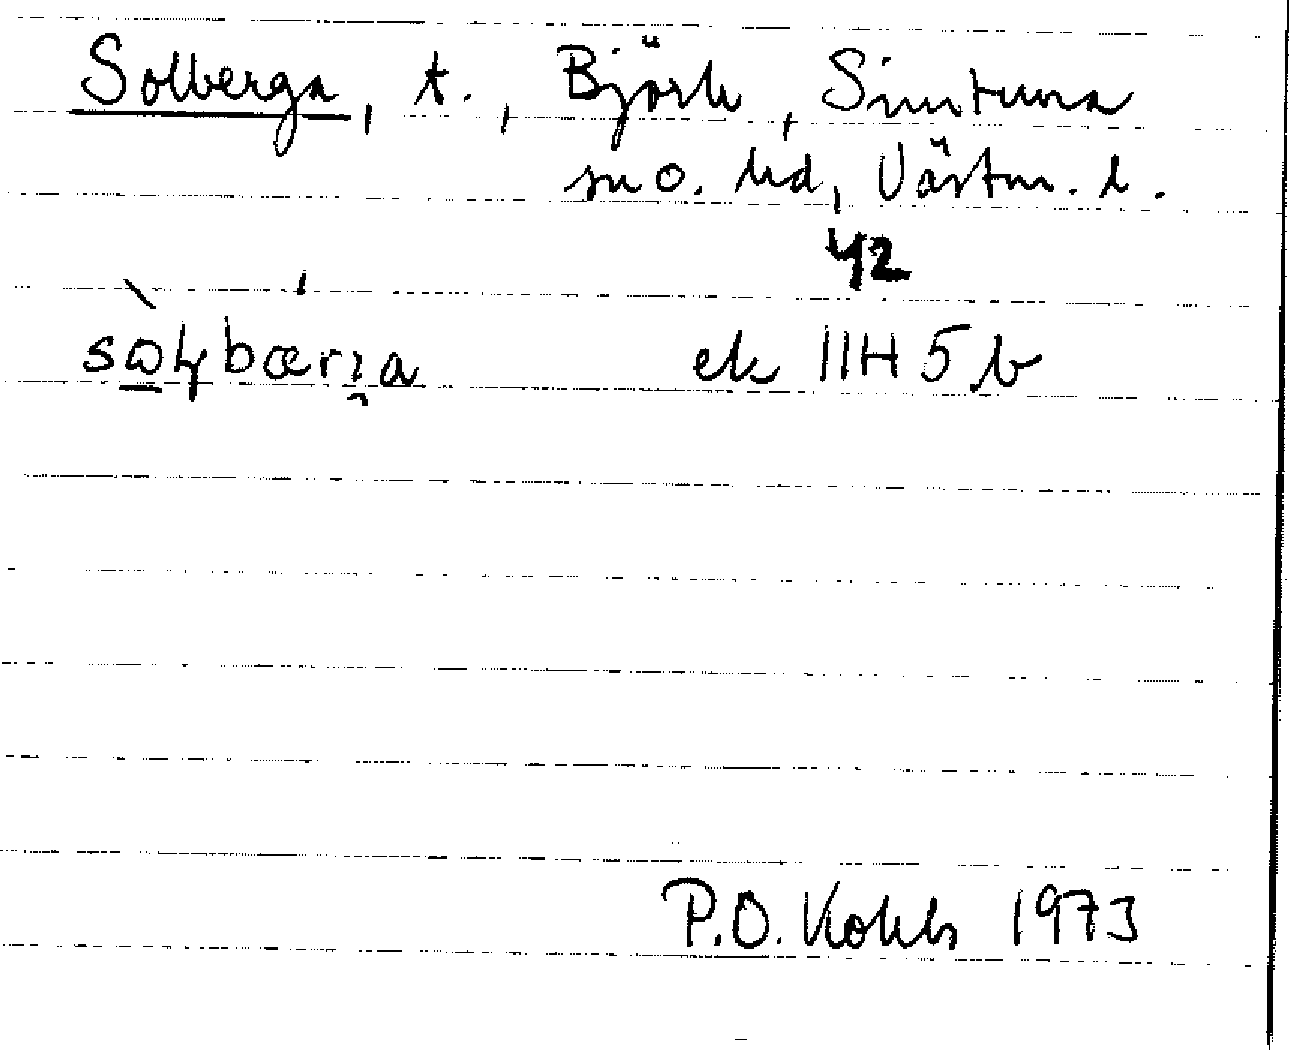 Solberga, t., Björk, Simtuna
sn o. hd, Västm. l.
42
sòlbærja ek 11H 5b
P.O. Kohls 1973